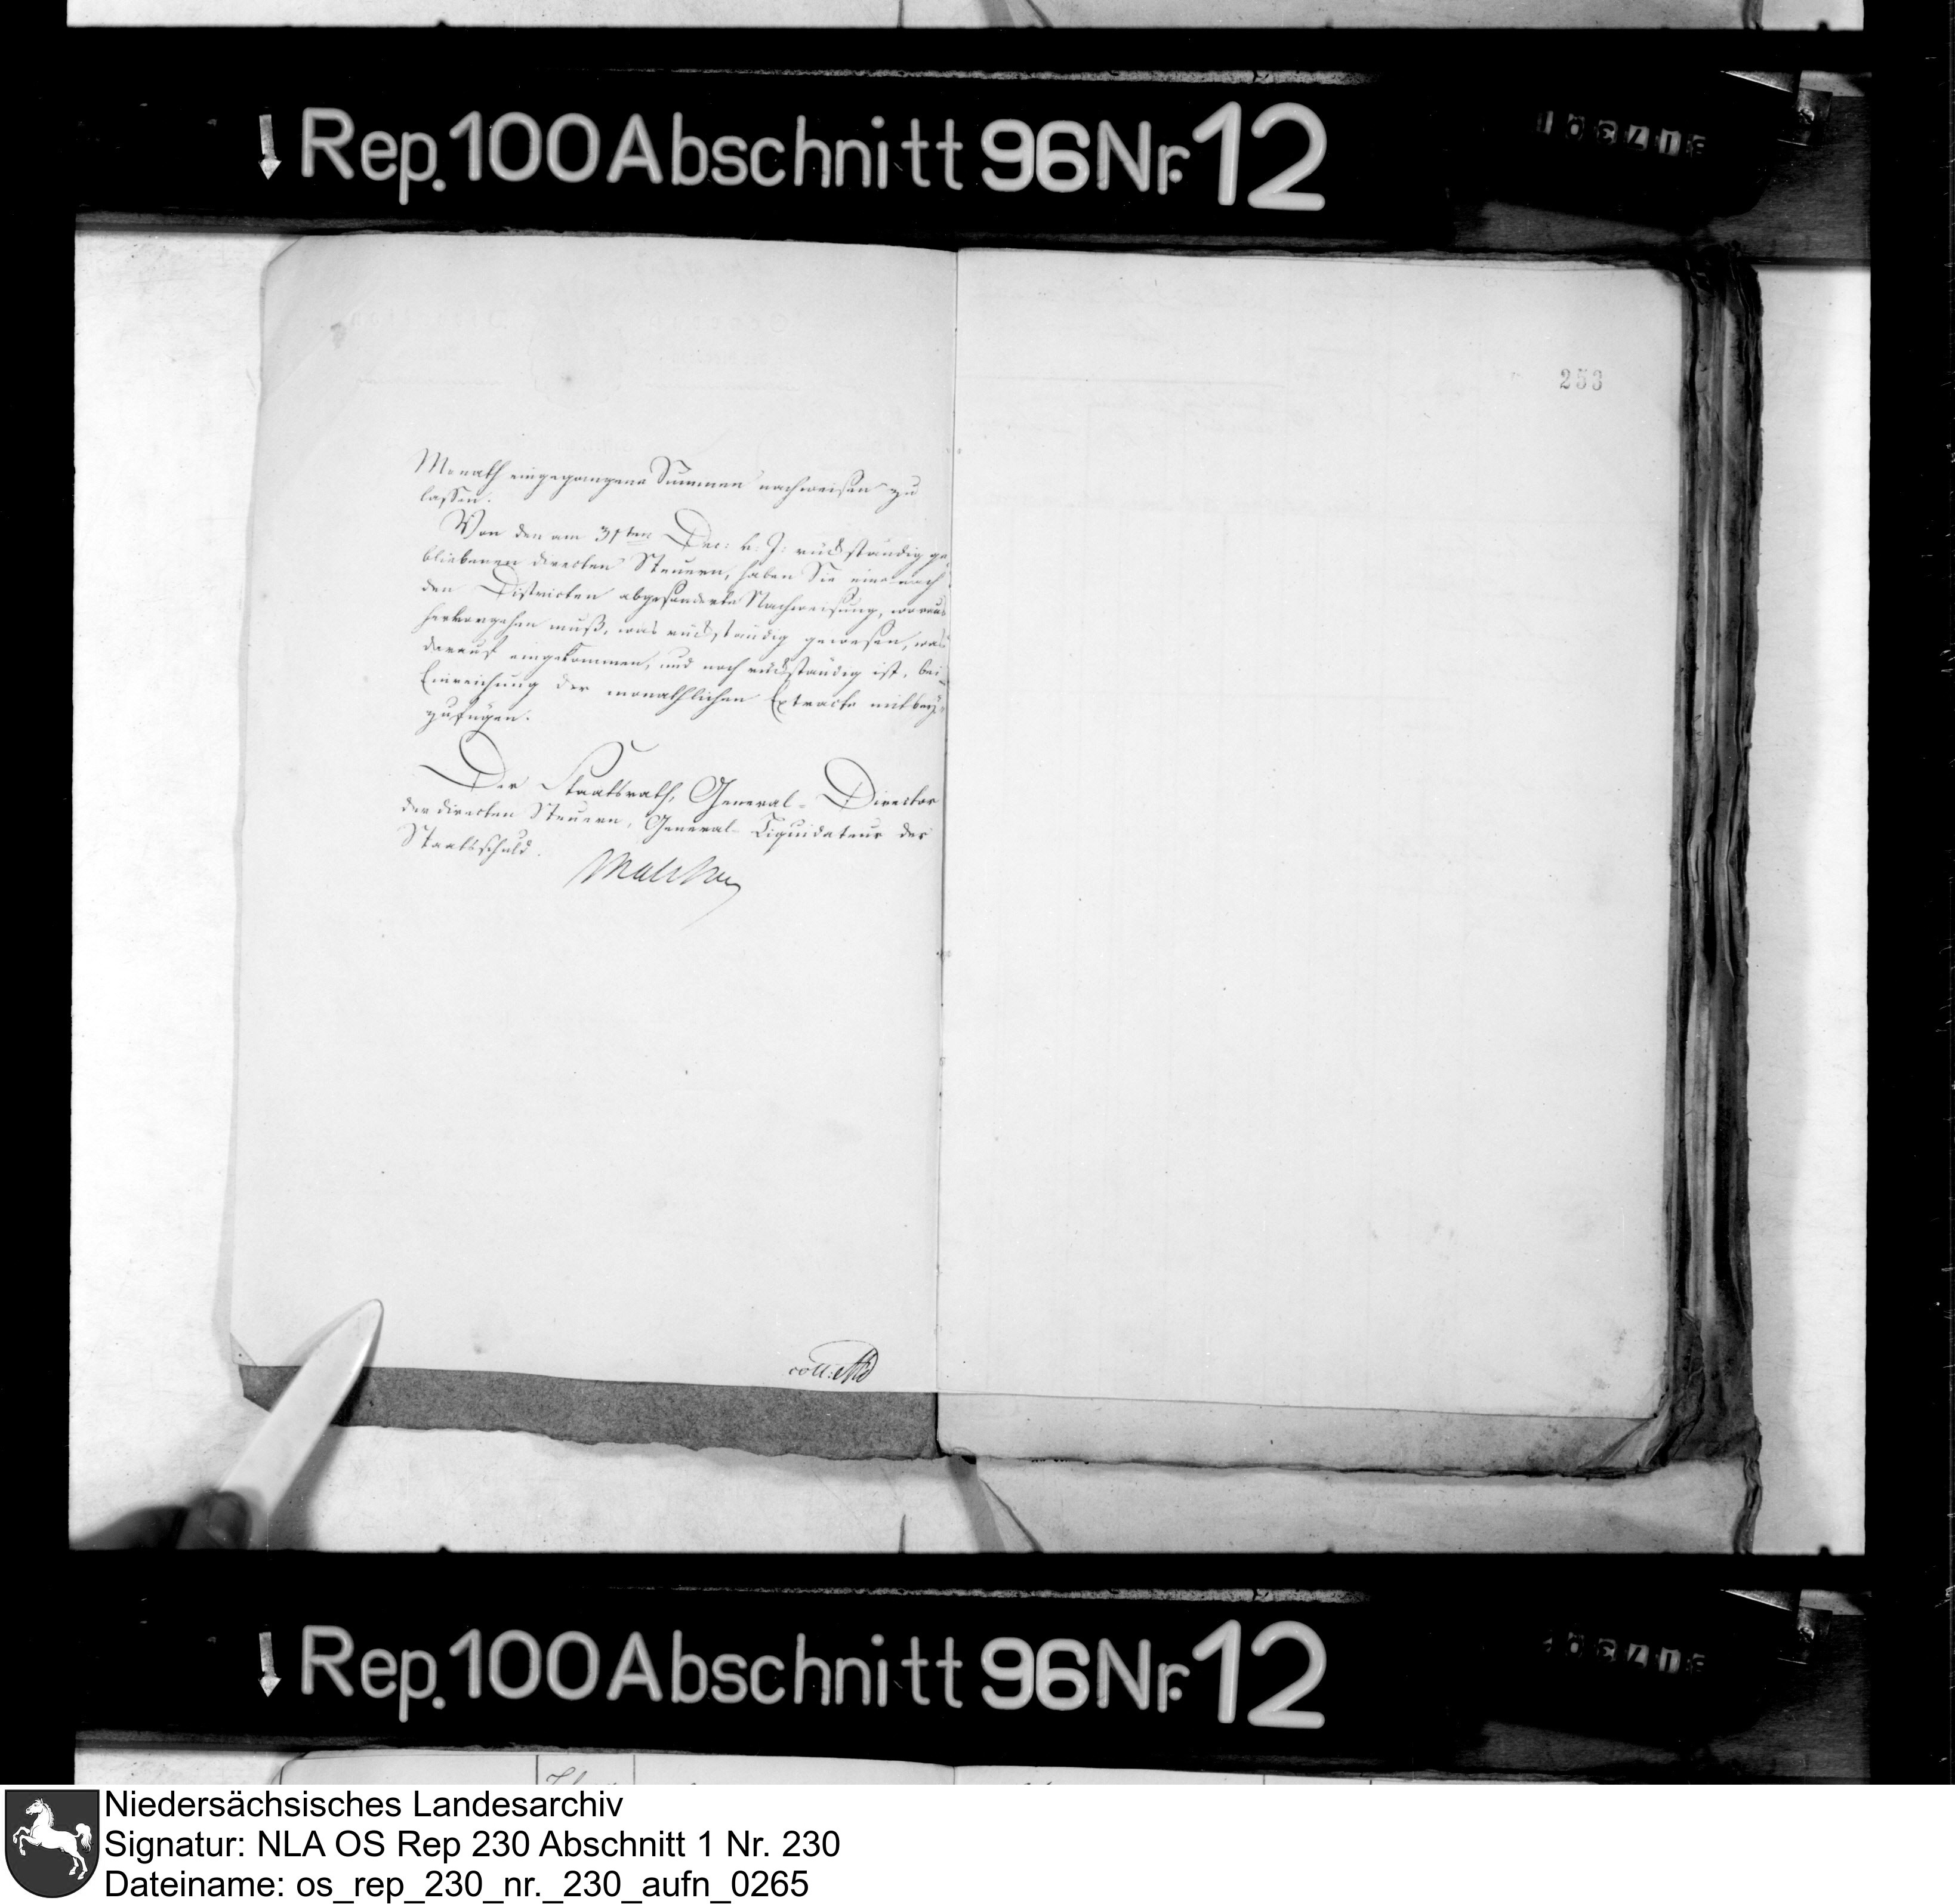 Rep. 100 Abschnitt 96 Nr. 12
253
Monath eingegangene Summen nachweisen zu
lassen.
Von den am 31ten Dec: v. J: rückständig ge-
bliebenen directen Steuern, haben Sie eine nach
den Districten abgesonderte Nachweisung, woraus
hervorgehen muß, was rückständig gewesen, was
darauf eingekommen, und noch rückständig ist, bei
Einreichung der monathlichen Extracte mit bey-
zufügen.
Der Staatsrath, General-Director
der directen Steuern, General-Liquidateur der
Staatsschuld.
Malchus
coll:
Rep. 100 Abschnitt 96 Nr. 12
Niedersächsisches Landesarchiv
Signatur: NLA OS Rep 230 Abschnitt 1 Nr. 230
Dateiname: os_rep_230_nr._230_aufn_0265